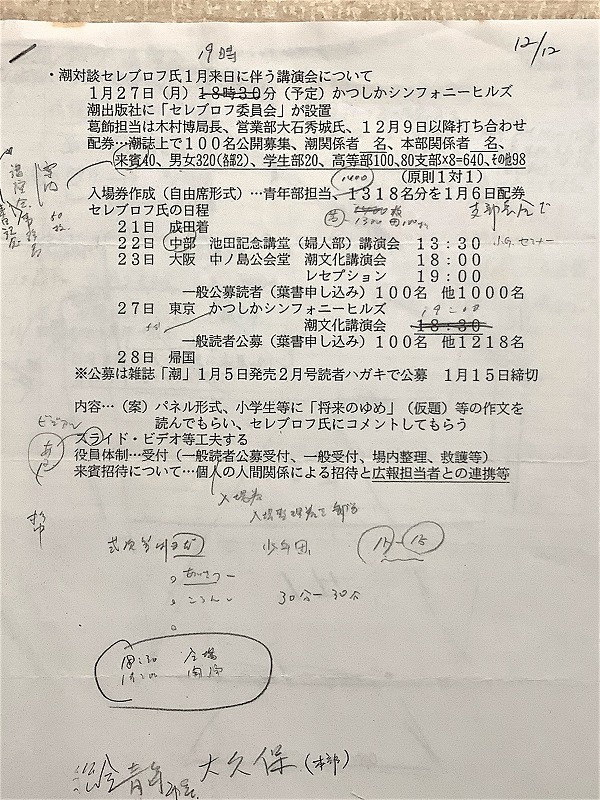 19時
12/12
・潮対談セレブロフ氏1月来日に伴う講演会について
1月27日(月)18時30分(予定)かつしかシンフォニーヒルズ
潮出版社に「セレブロフ委員会」が設置
葛飾担当は木村博局長、営業部大石秀城氏、12月9日以降打ち合わせ
配券…潮誌上で100名公開募集、潮関係者 名、本部関係者 名、
来賓40、男女320(各部2)、学生部20、高等部100、80支部×8=640、その他98
(原則1対1)
1400
入場券作成(自由席形式)…青年部担当、1318名分を1月6日配券
セレブロフ氏の日程
21日 成田着
22日 中部 池田記念講堂(婦人部)講演会 13:30
23日 大阪 中ノ島公会堂 潮文化講演会 18:00
レセプション 19:00
一般公募読者(葉書申し込み)100名 他1000名
27日 東京 かつしかシンフォニーヒルズ
19:00
潮文化講演会 18:30
一般読者公募(葉書申し込み)100名 他1218名
28日 帰国
※公募は雑誌「潮」1月5日発売2月号読者ハガキで公募 1月15日締切
内容…(案)パネル形式、小学生等に「将来のゆめ」(仮題)等の作文を
読んでもらい、セレブロフ氏にコメントしてもらう
スライド・ビデオ等工夫する
役員体制…受付(一般読者公募受付、一般受付、場内整理、救護等)
来賓招待について…個人の人間関係による招待と広報担当者との連携等
少年団
30分-30分
大久保(本部)